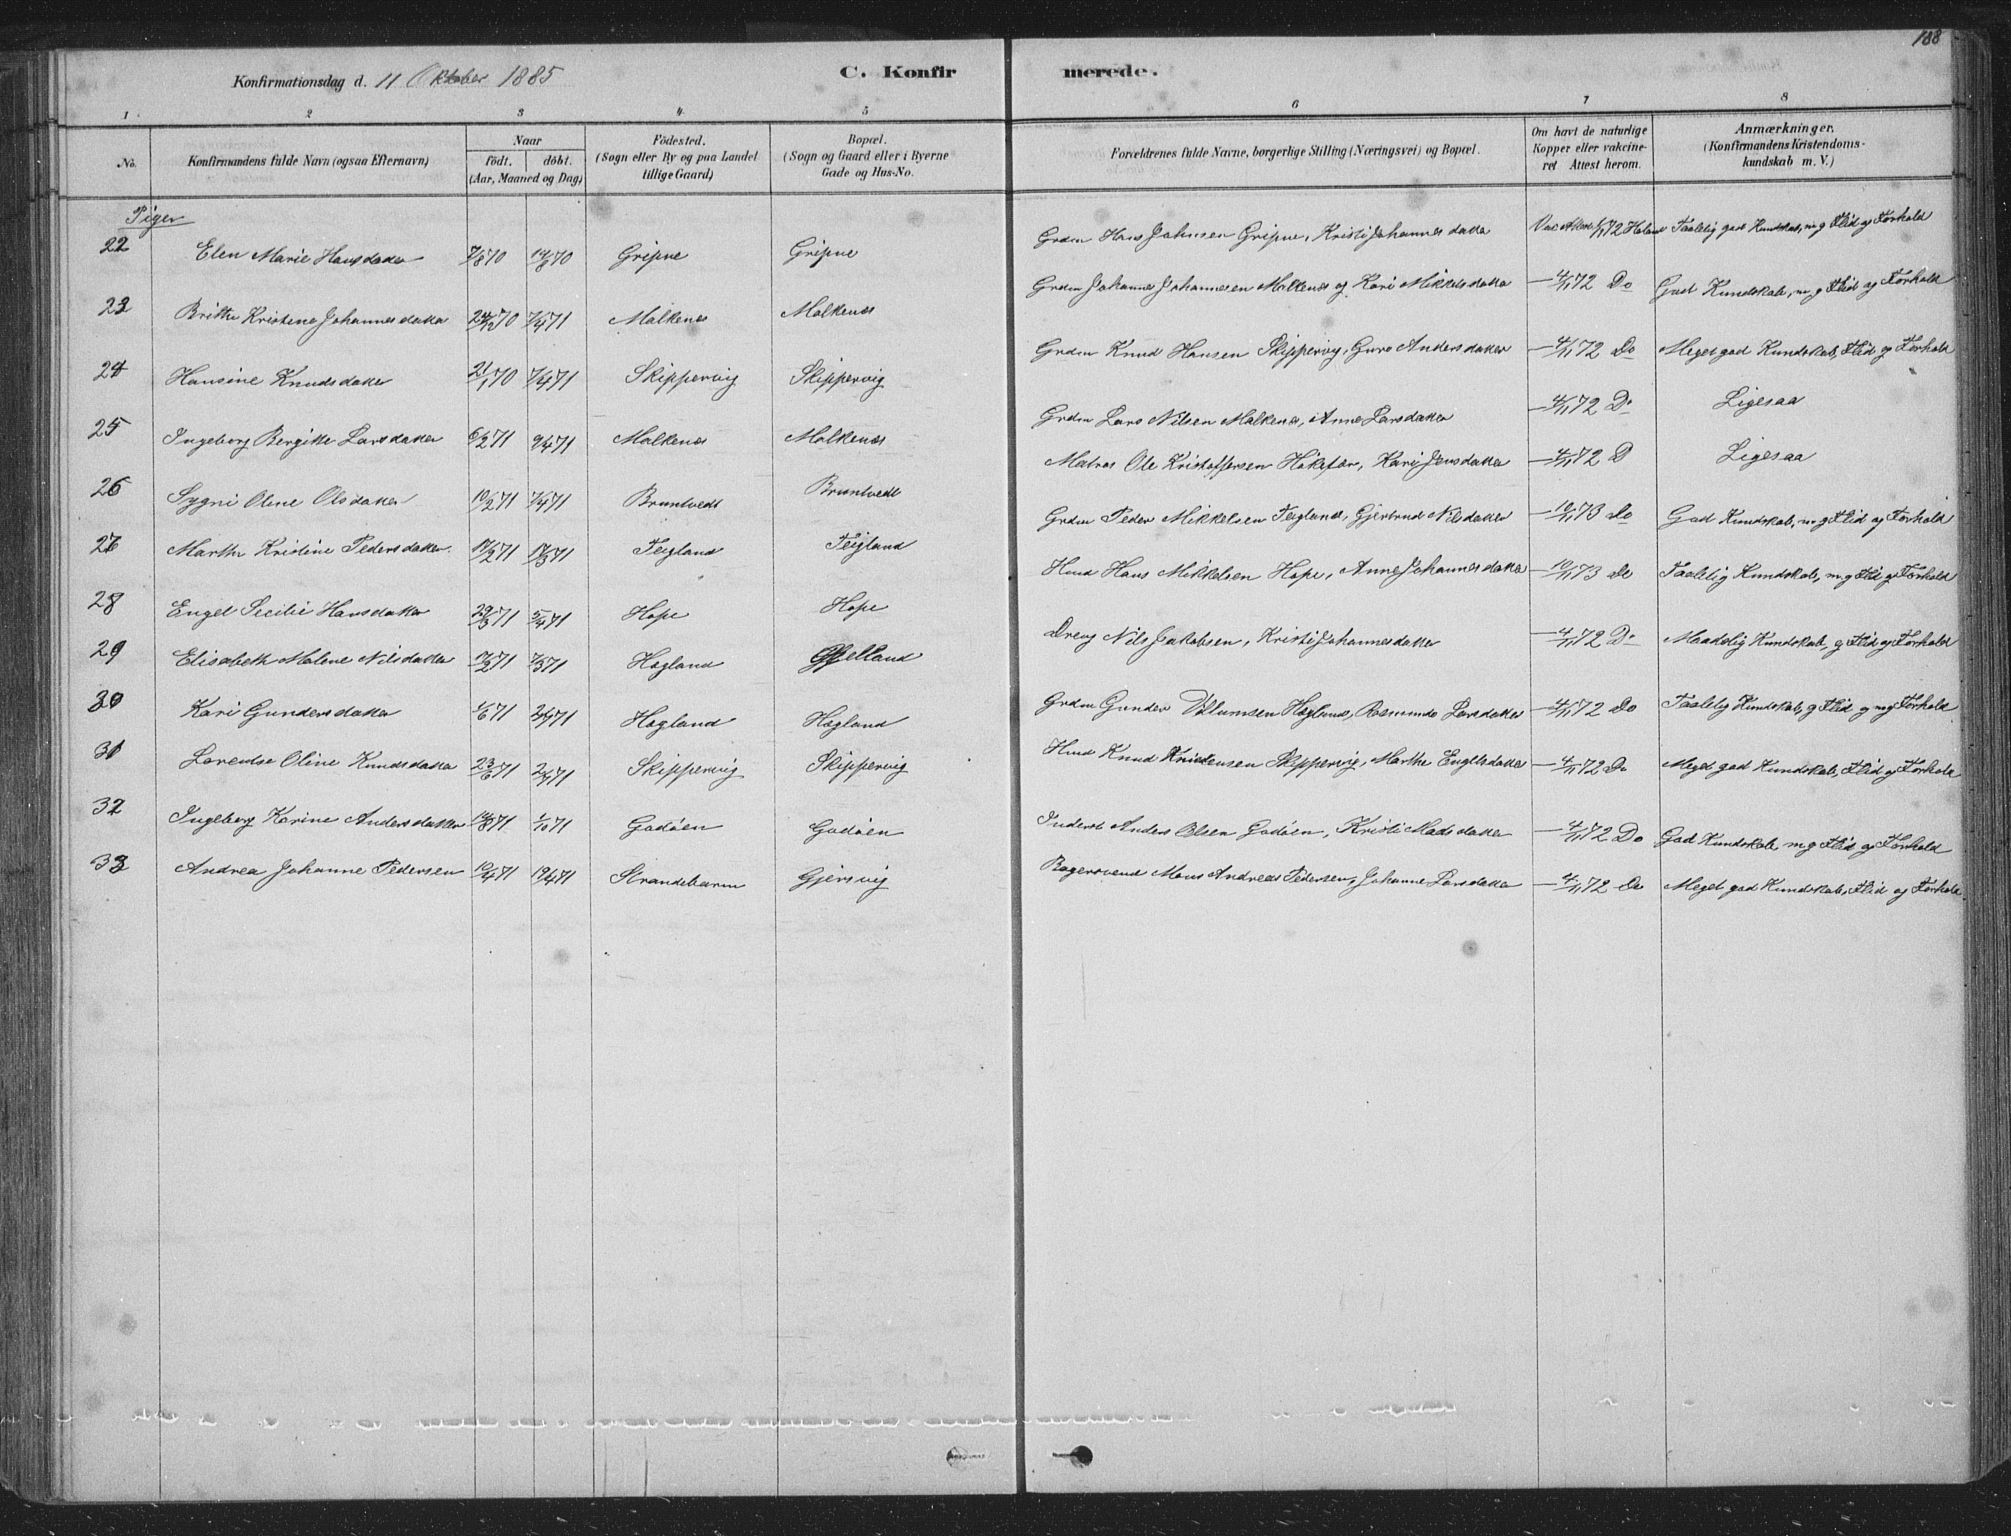 188
Konfirmationsdag d. 11 Oktober 1885
C. Konfirmerede.
1 2 3 4 5 6 7 8
No.
Konfirmandens fulde Navn (ogsaa Efternavn)
Naar
födt. döbt.
(Aar, Maaned og Dag)
Födested.
(Sogn eller By og paa Landet
tillige Gaard)
Bopæl.
(Sogn og Gaard eller i Byerne
Gade og Hus-No.
Forældrenes fulde Navne, borgerlige Stilling (Næringsvei) og Bopæl.
Om havt de naturlige
Kopper eller vakcine-
ret Attest herom.
Anmærkninger.
(Konfirmandens Kristendoms-
kundskab m. V.)
Piger
22 Elen Marie Hansdatter 7/8 70 14/8 70 Gripne Gripne Grdm Hans Johnsen Gripne, Kristi Johannesdatter Vac Attest 1872 Taalelig god Kundskab, m g Flid og Forhold
23 Brithe Kristene Johannesdatter 24/12 70 7/4 71 Malkenes Malkenes Grdm Johannes Johannesen Malkenes og Kari Mikkelsdatter — 4/11 72 Do God Kundskab, m g Flid og Forhold
24 Hansine Knudsdatter 21/1 70 7/4 71 Skippervig Skippervig Grdm Knud Hansen Skippervig, Guro Andersdatter — 4/11 72 Do Meget god Kundskab, Flid og Forhold
25 Ingeborg Bergitte Larsdatter 6/2 71 9/4 71 Malkenes Malkenes Grdm Lars Nilsen Malkenes, Anne Larsdatter — 4/11 72 Do Ligesaa
26 Sygni Oline Olsdatter 10/2 71 7/4 71 Bruntvedt Bruntvedt Matros Ole Kristoffersen, Kari Jensdatter — 4/11 72 D Ligesaa
27 Marthe Kristine Pedersdatter 17/2 71 17/3 71 Teigland Teigland Grdm Peder Mikkelsen Teigland, Gjertrud Nilsdatter — 10/11 73 Do God Kundskab, m g Flid og Forhold
28 Engel Secilie Hansdatter 29/3 71 5/4 71 Hope Hope Hmd Hans Mikkelsen Hope, Anne Johannesdatter — 10/11 73 Do Taalelig Kundskab, m g Flid og Forhold
29 Elisabeth Malene Nilsdatter 17/2 71 7/3 71 Hogland Gjelland Dreng Nils Jakobsen, Kristi Johannesdatter — 4/11 72 Do Maadelig Kundskab, g Flid og Forhold
30 Kari Gundersdatter 1/6 71 2/7 71 Hogland Hogland Grdm Gunder Hogland, Rasmunda Larsdatter — 4/11 72 Do Taalelig Kundskab, g Flid og m g Forhold
31 Lorentse Oline Knudsdatter 23/6 71 2/7 71 Skippervig Skippervig Hmd Knud Kristensen Skippervig, Marthe Engelsdatter — 4/11 72 Do Meget god Kundskab, Flid og Forhold
32 Ingeborg Karine Andersdatter 14/8 71 1/10 71 Godöen Godöen Inderst Anders Olsen Godöen, Kristi Madsdatter — 4/11 72 Do God Kundskab, m g Flid og Forhold
33 Andrea Johanne Pedersen 10/4 71 19/4 71 Strandebarm Gjersvig Bagersvend Mons Andreas Pedersen, Johanne Larsdatter — 4/11 72 Do Meget god Kundskab, Flid og Forhold